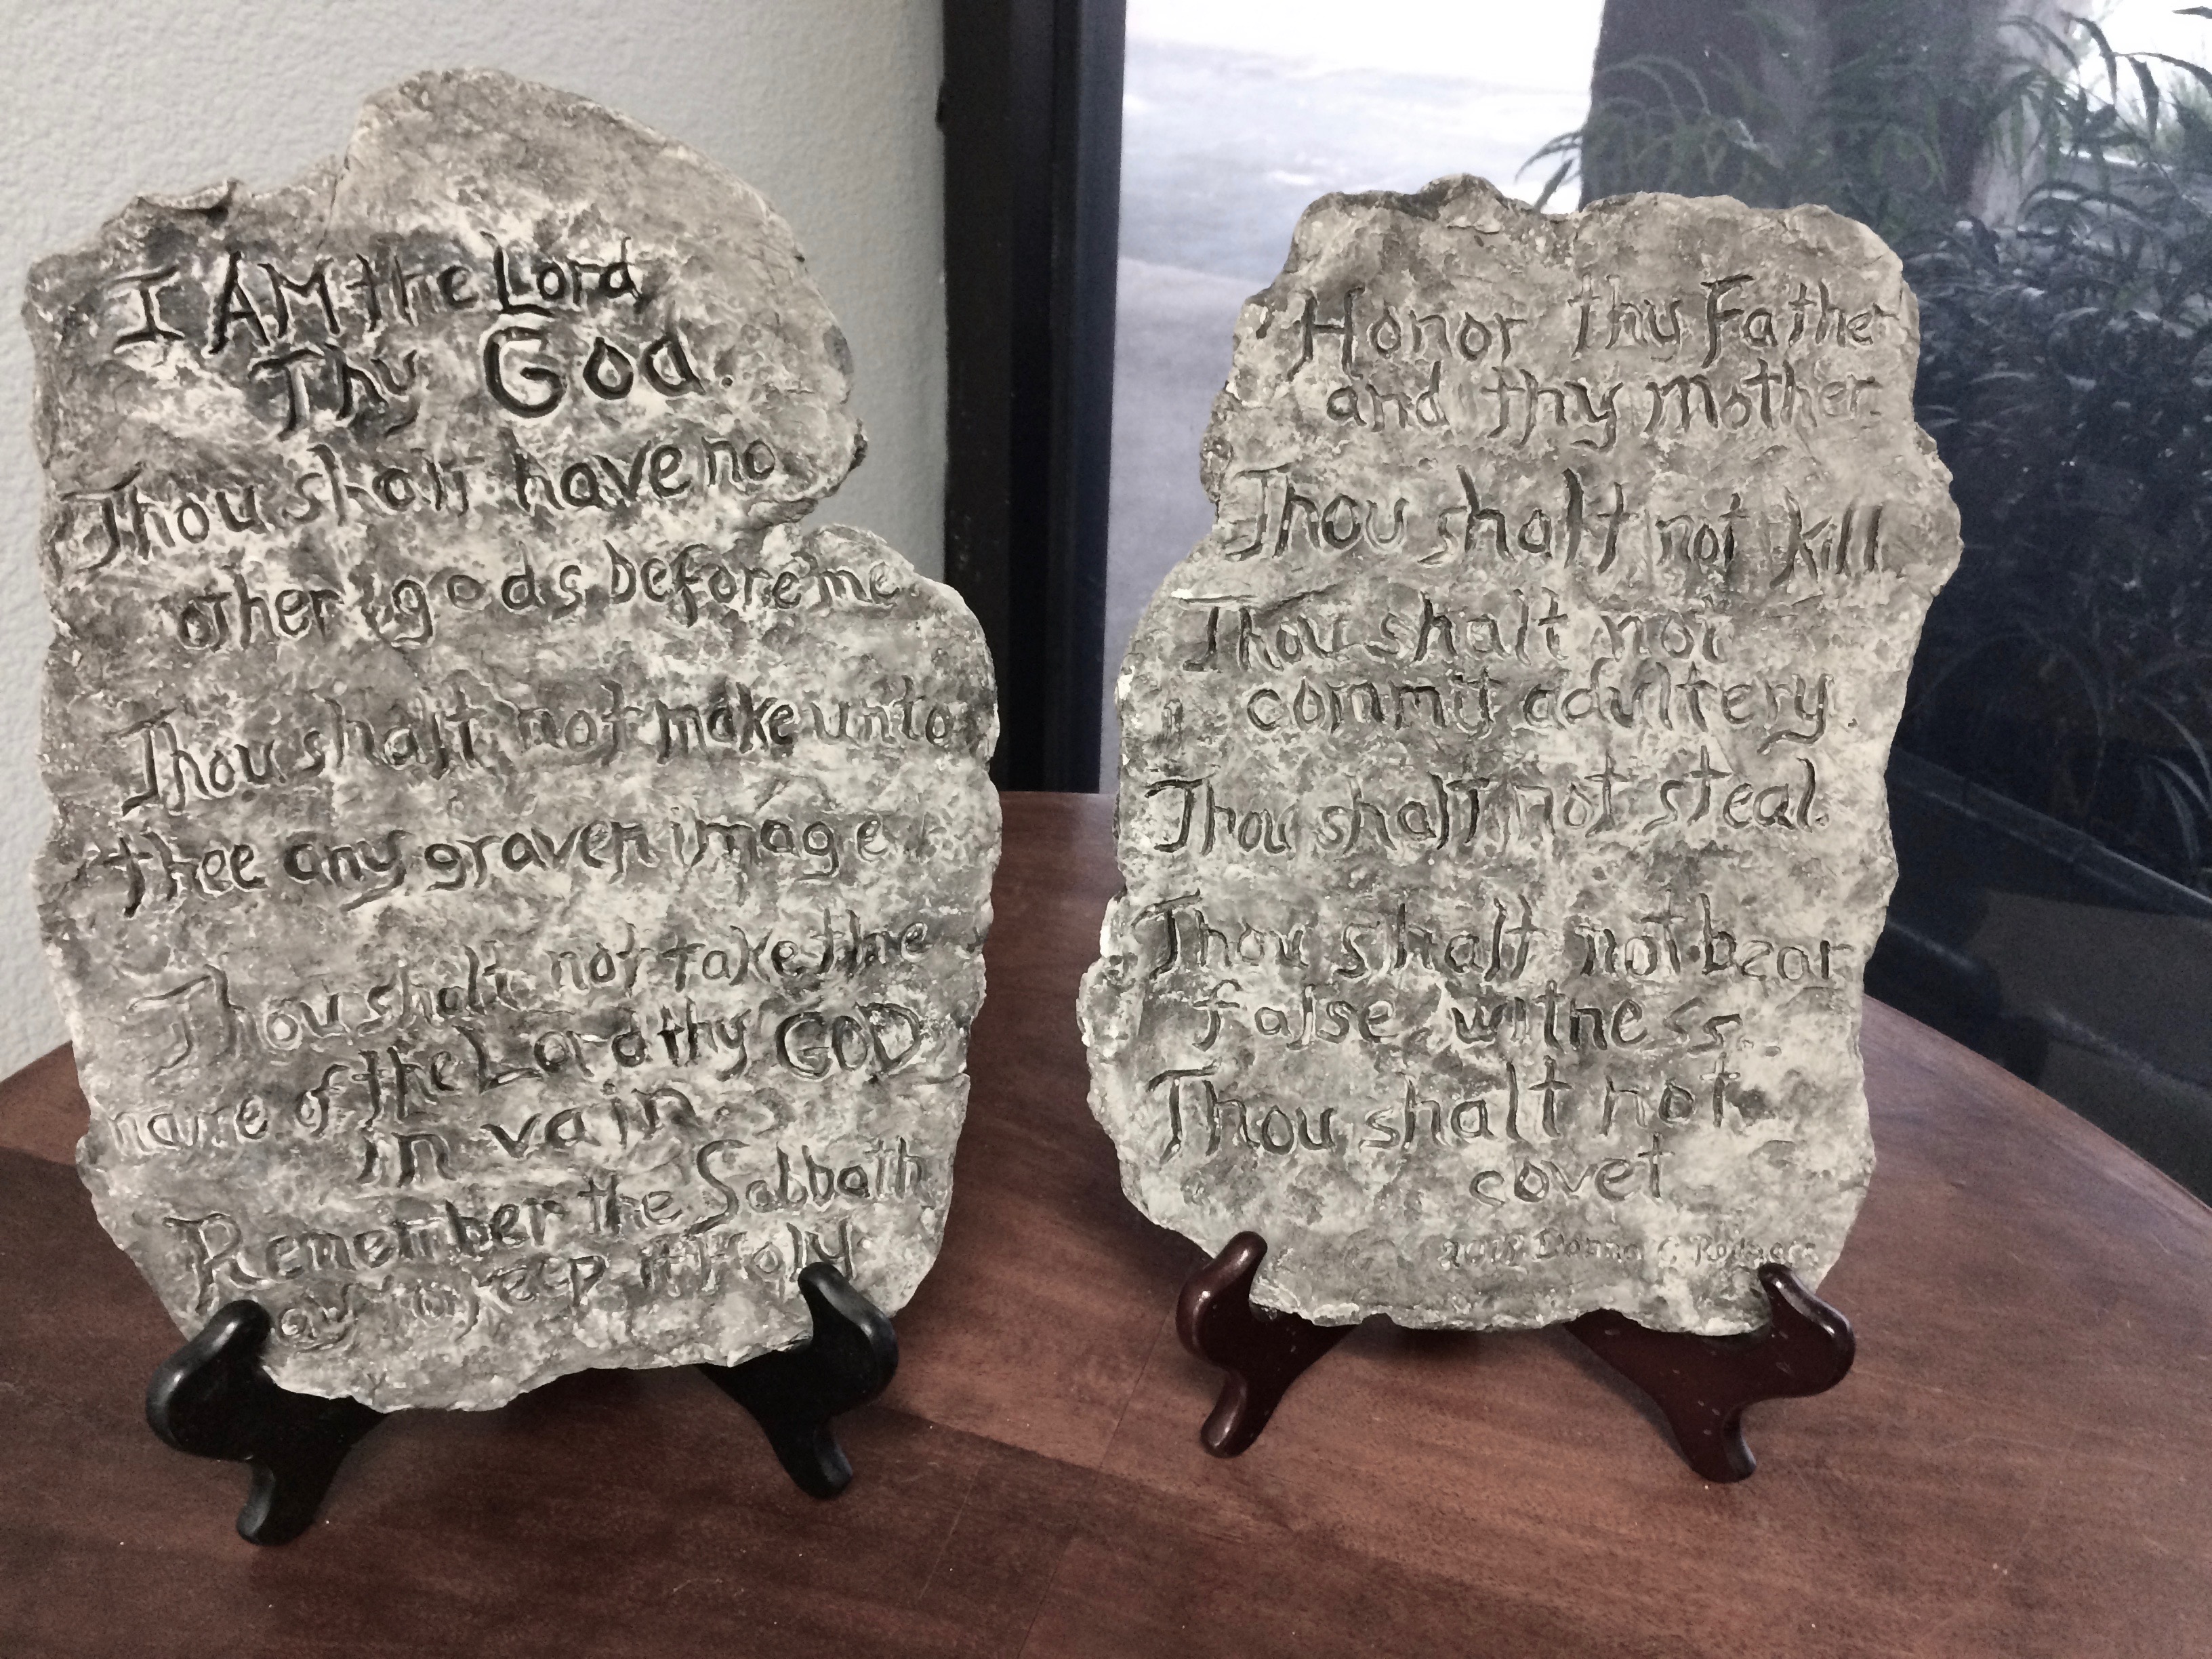 I AM the Lord
Thy God.
Thou shalt have no
other gods before me.
Thou shalt not make unto
thee any graven image
Thou shalt not take the
name of the Lord thy GOD
in vain.
Remember the Sabbath
day to keep it Holy.
Honor thy Father
and thy mother.
Thou shalt not kill
Thou shalt not
commit adultery.
Thou shalt not steal.
Thou shalt not bear
false witness.
Thou shalt not
covet
Donna C